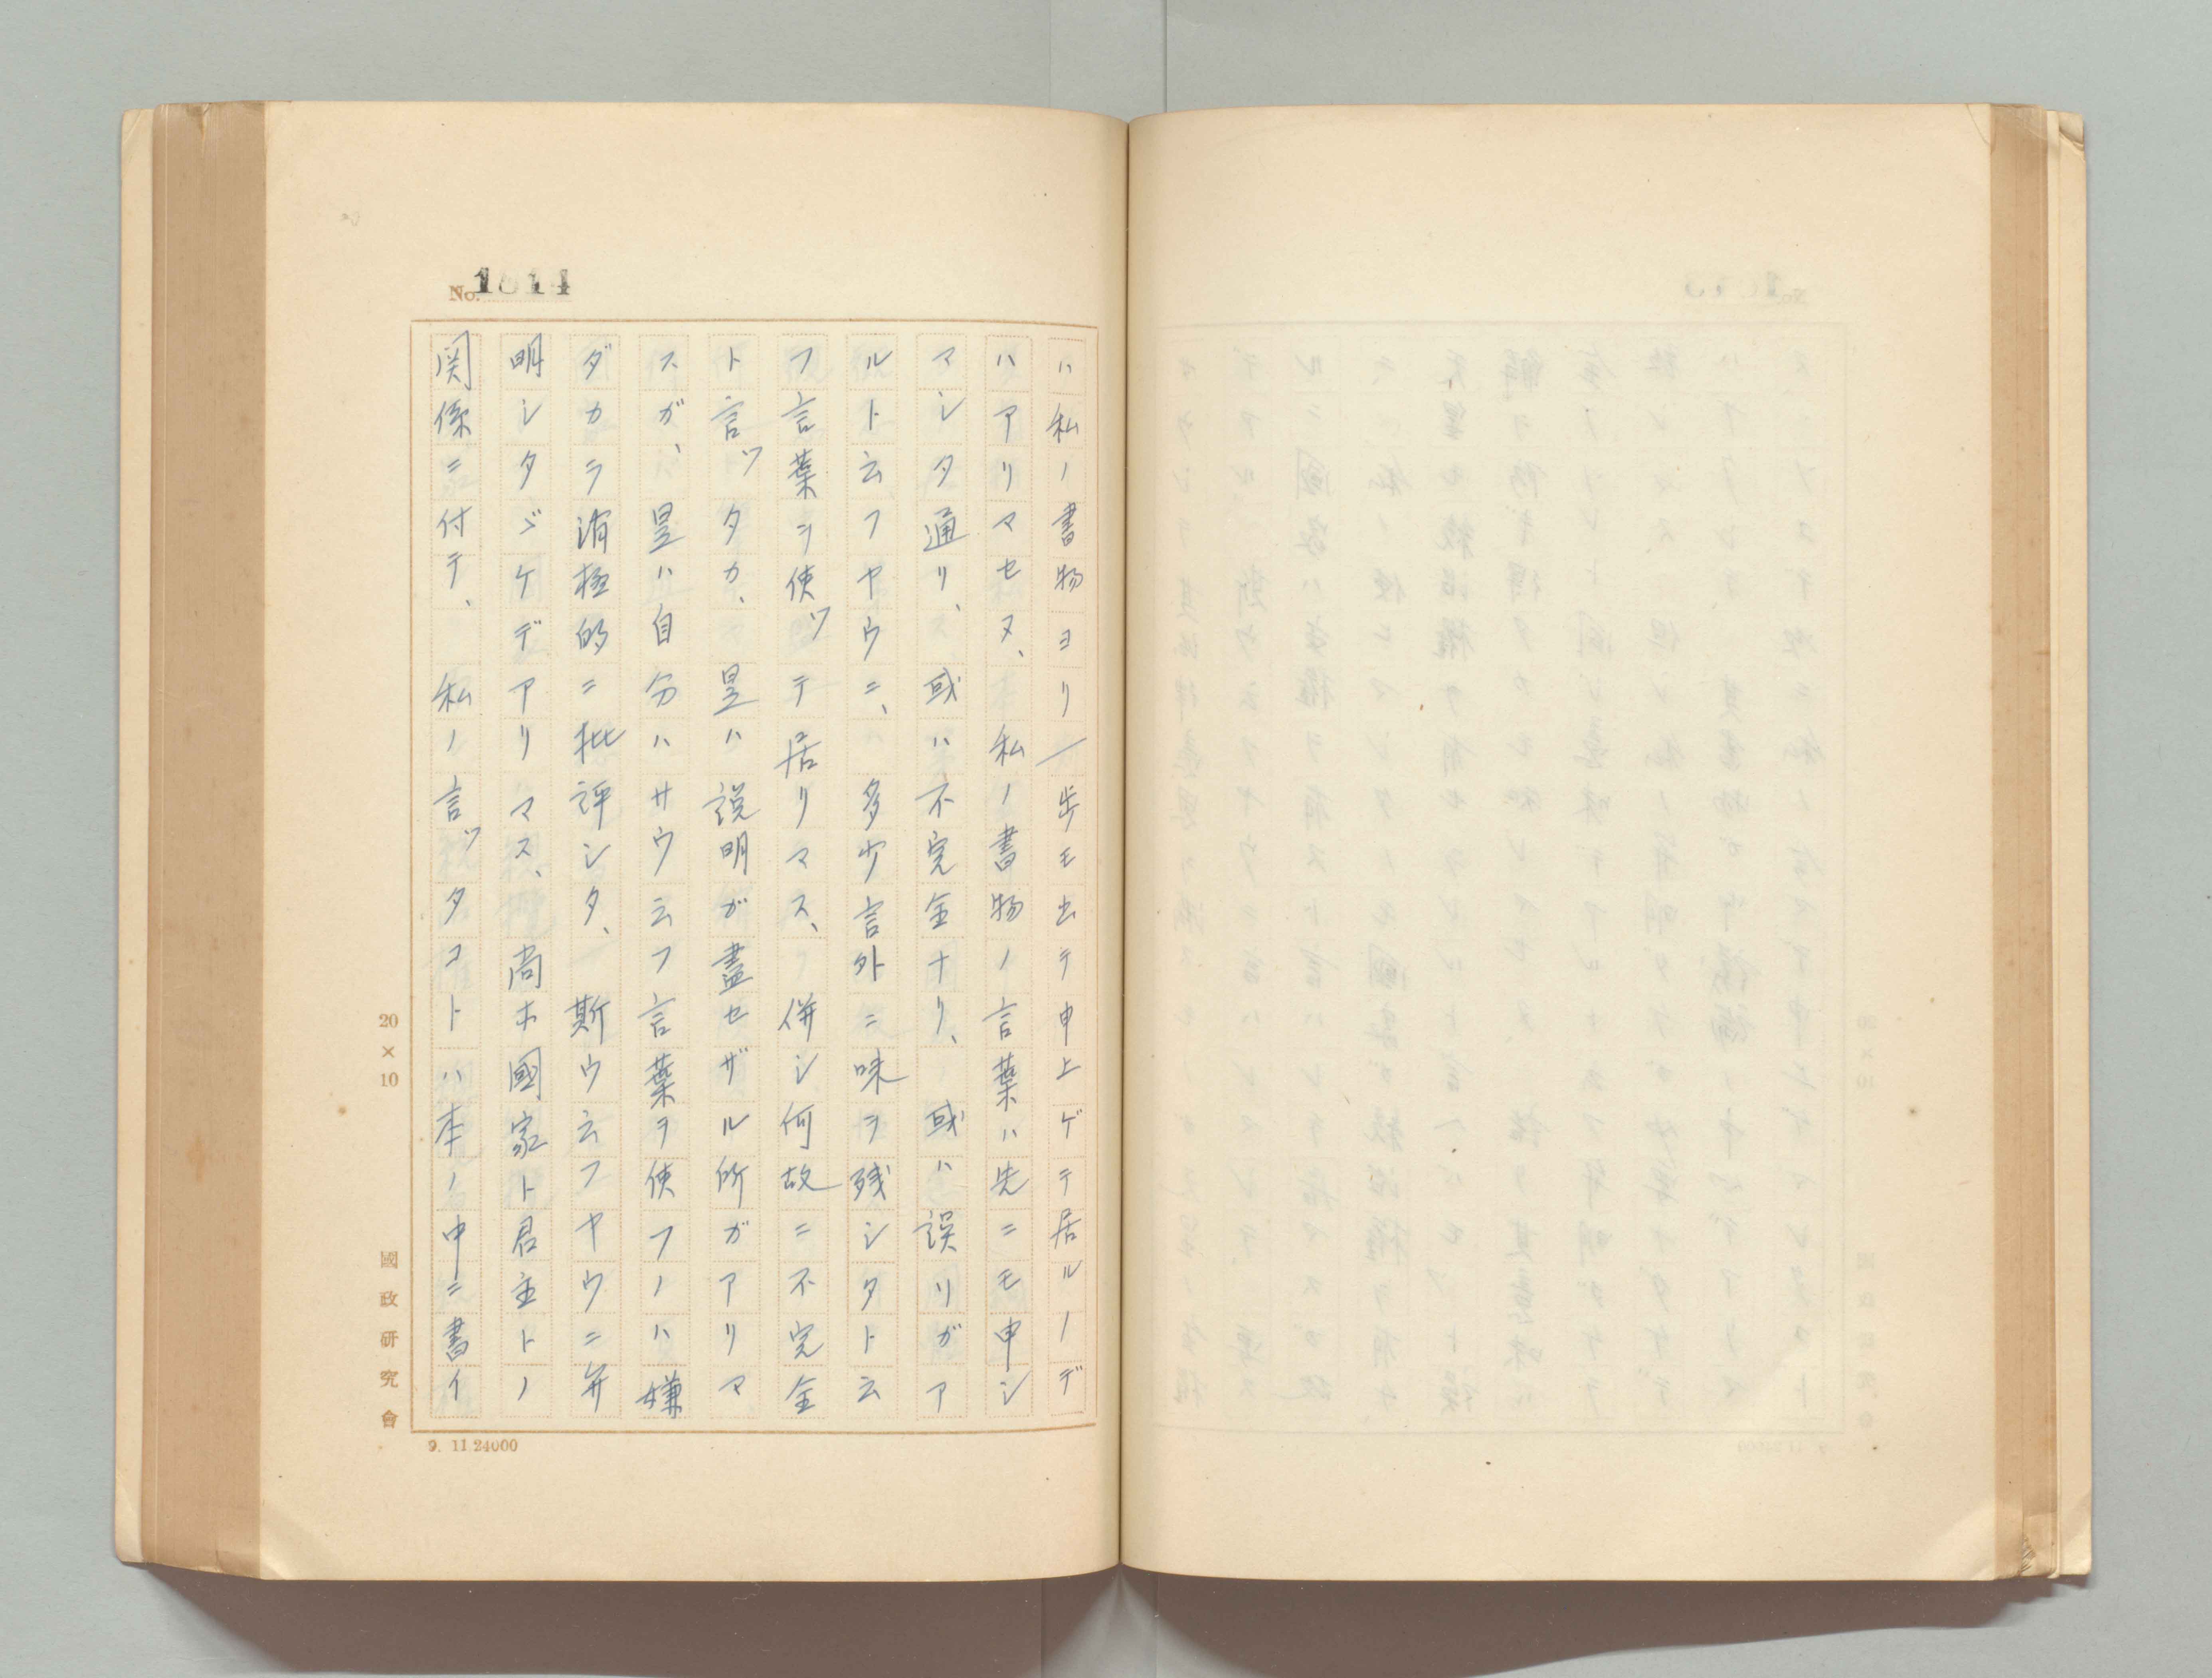 No. 1814
ハ私ノ書物ヨリ一歩モ出テ申上ゲテ居ルノデ
ハアリマセヌ、私ノ書物ノ言葉ハ先ニモ申シ
マシタ通リ、或ハ不完全ナリ、或ハ誤リガア
ルト云フヤウニ、多少言外ニ味ヲ残シタト云
フ言葉ヲ使ツテ居リマス、併シ何故ニ不完全
ト言ツタカ、昰ハ説明ガ盡セザル所ガアリマ
スガ、昰ハ自分ハサウ云フ言葉ヲ使フノハ嫌
ダカラ消極的ニ批評シタ、斯ウ云フヤウニ弁
明シタヾケデアリマス、尚ホ國家ト君主トノ
関係ニ付テ、私ノ言ツタコトハ本ノ中ニ書イ
20×10
國政研究會
9. 11.24000